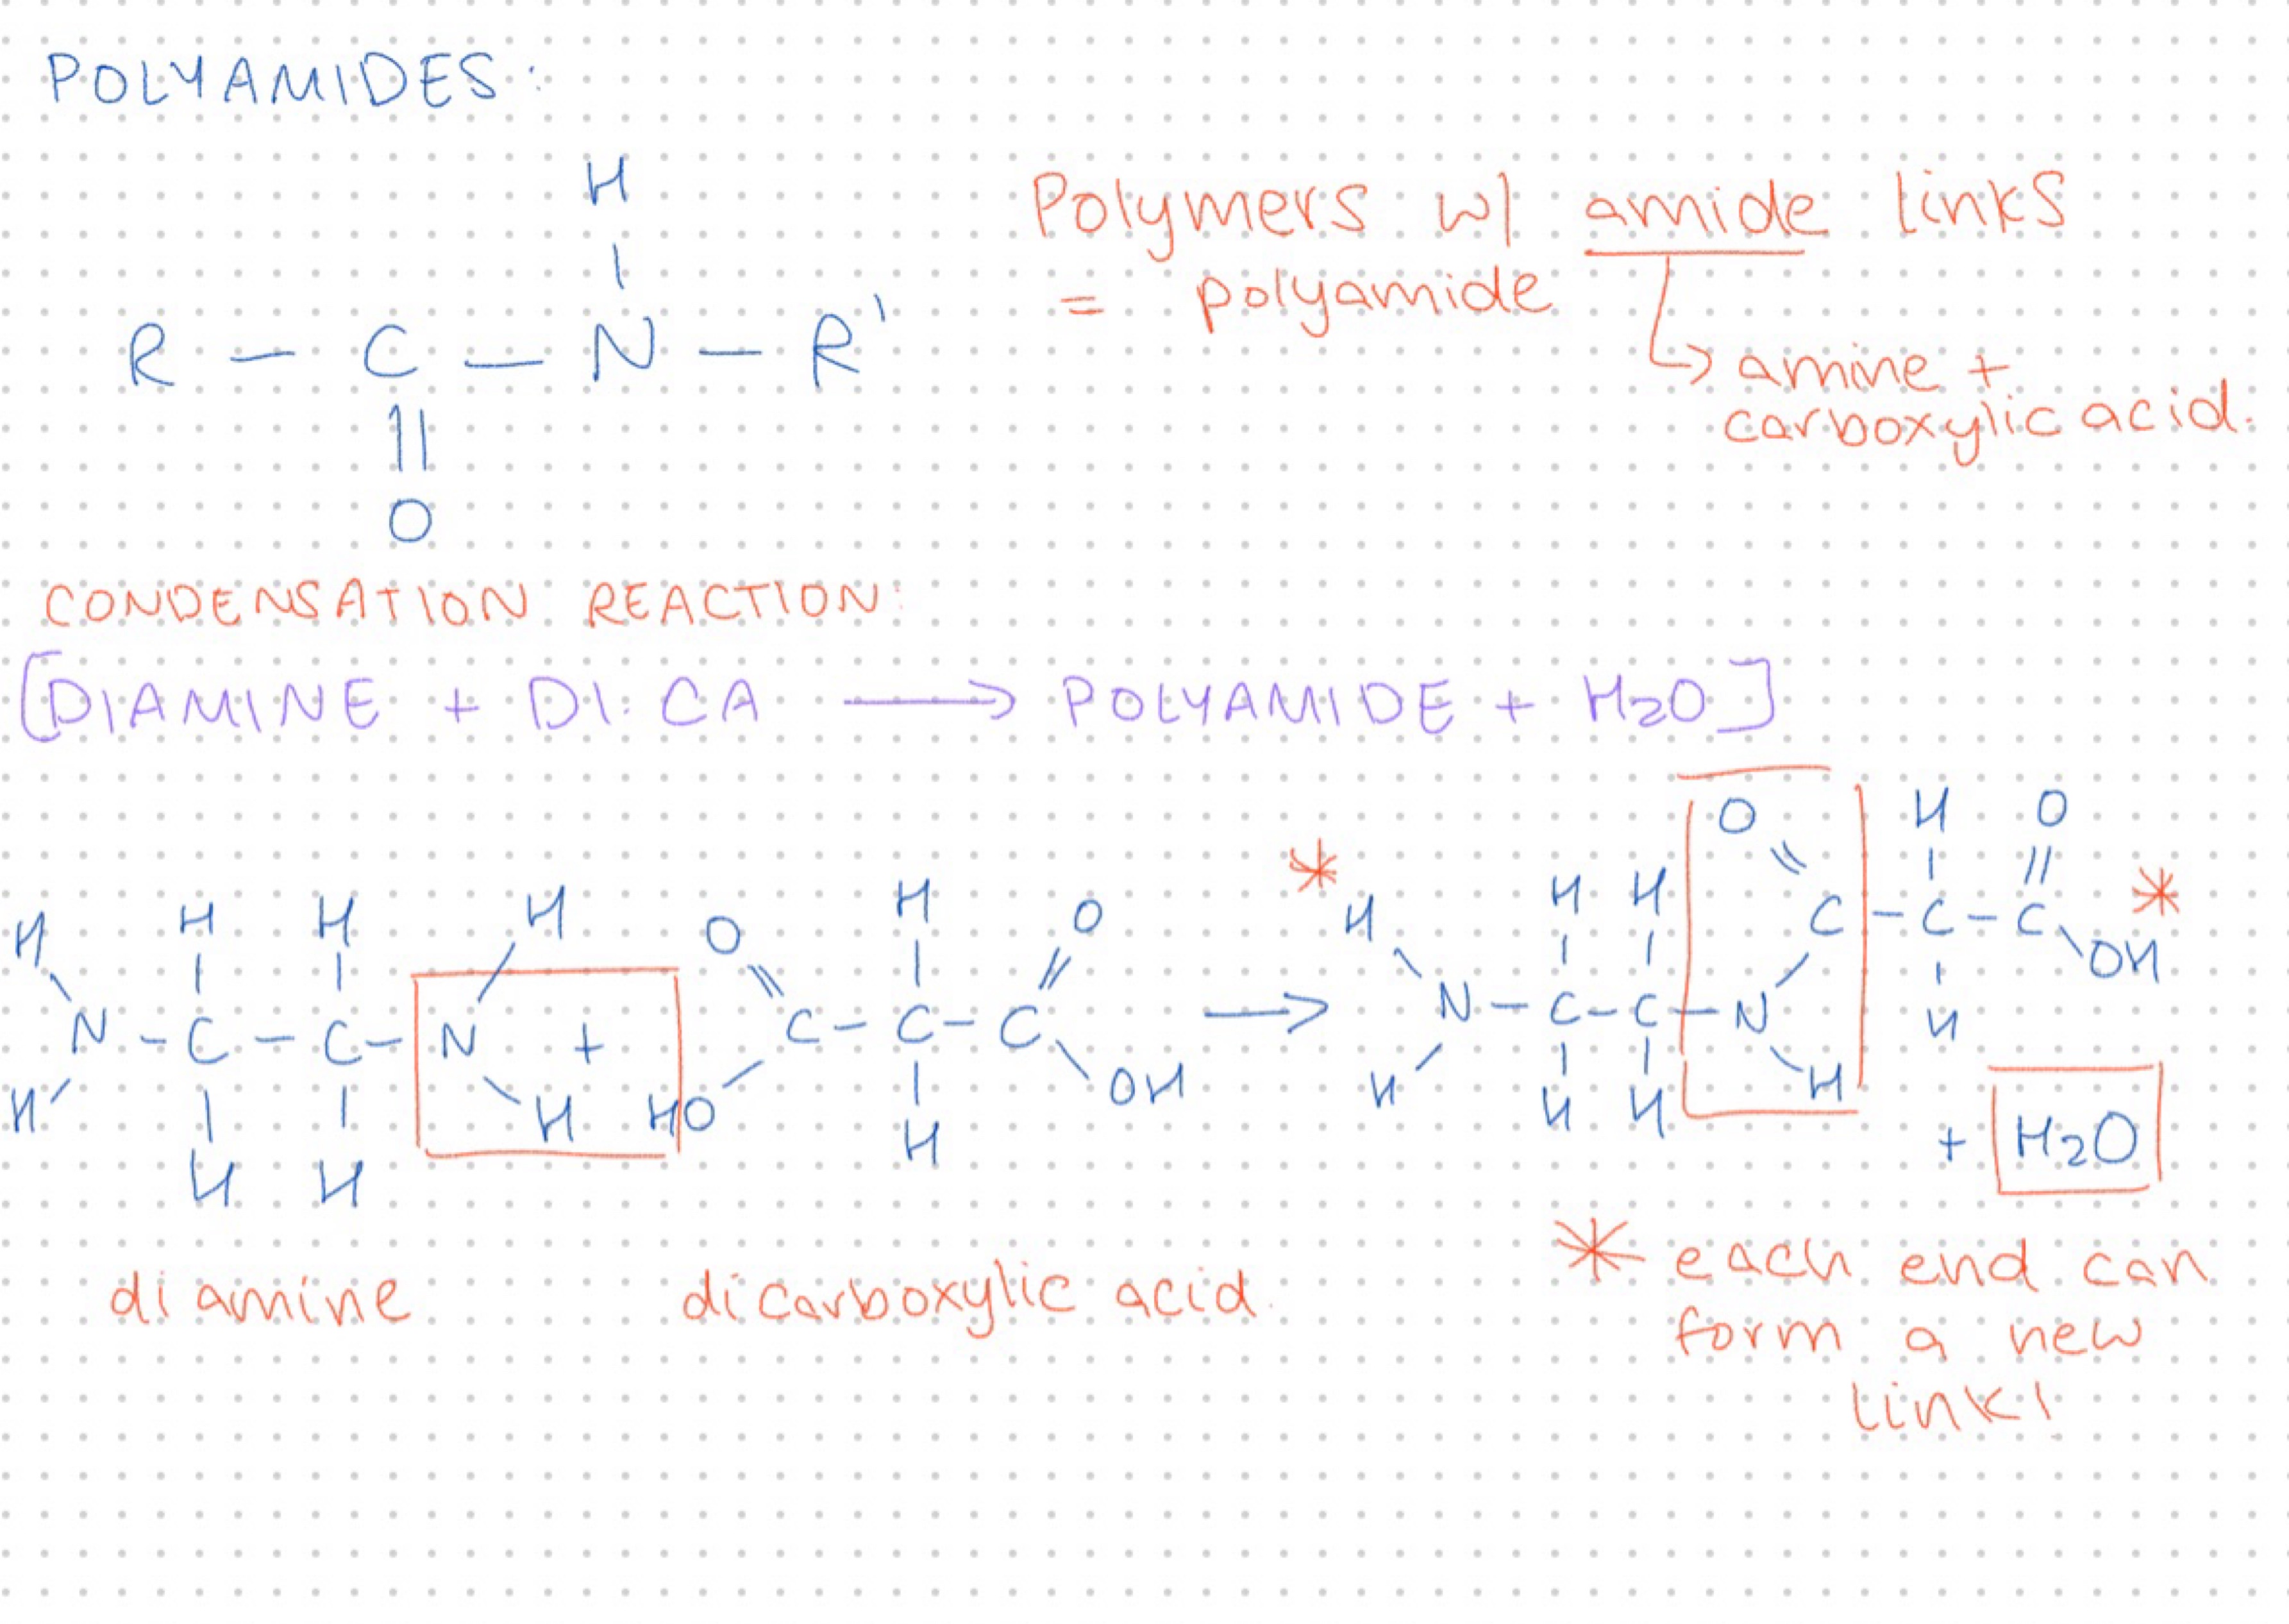 POLYAMIDES:
H
|
R - C - N - R'
||
O
Polymers w/ amide links
= polyamide
↳ amine +
carboxylic acid.
CONDENSATION REACTION:
[DIAMINE + DI. CA → POLYAMIDE + H2O]
H H H H O H O
N - C - C - N + C - C - C →
H H H H HO H OH
* H H H O H O *
N - C - C - N C - C - C OH
H H H H H
+ H2O
diamine dicarboxylic acid.
* each end can
form a new
link!